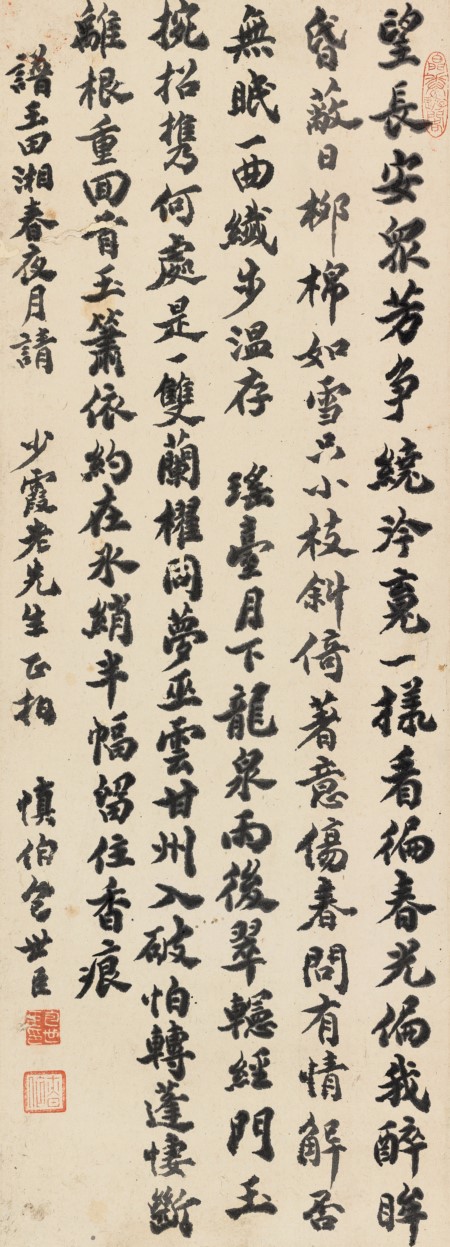 望長安眾芳争繞泠竟一樣看徧春光偏我醉眸
昏蔽日柳棉如雪只小枝斜倚著意傷春問有情解否
無眠一曲纖步溫存 瑤臺月下龍泉雨後翠轣經門玉
捥招携何處是一雙蘭櫂同夢巫雲甘州入破怕轉蓬悽斷
離根重回首玉簫依約在氷綃半幅留住香痕
譜玉田湘春夜月請 少霞老先生正拍 慎伯包世臣